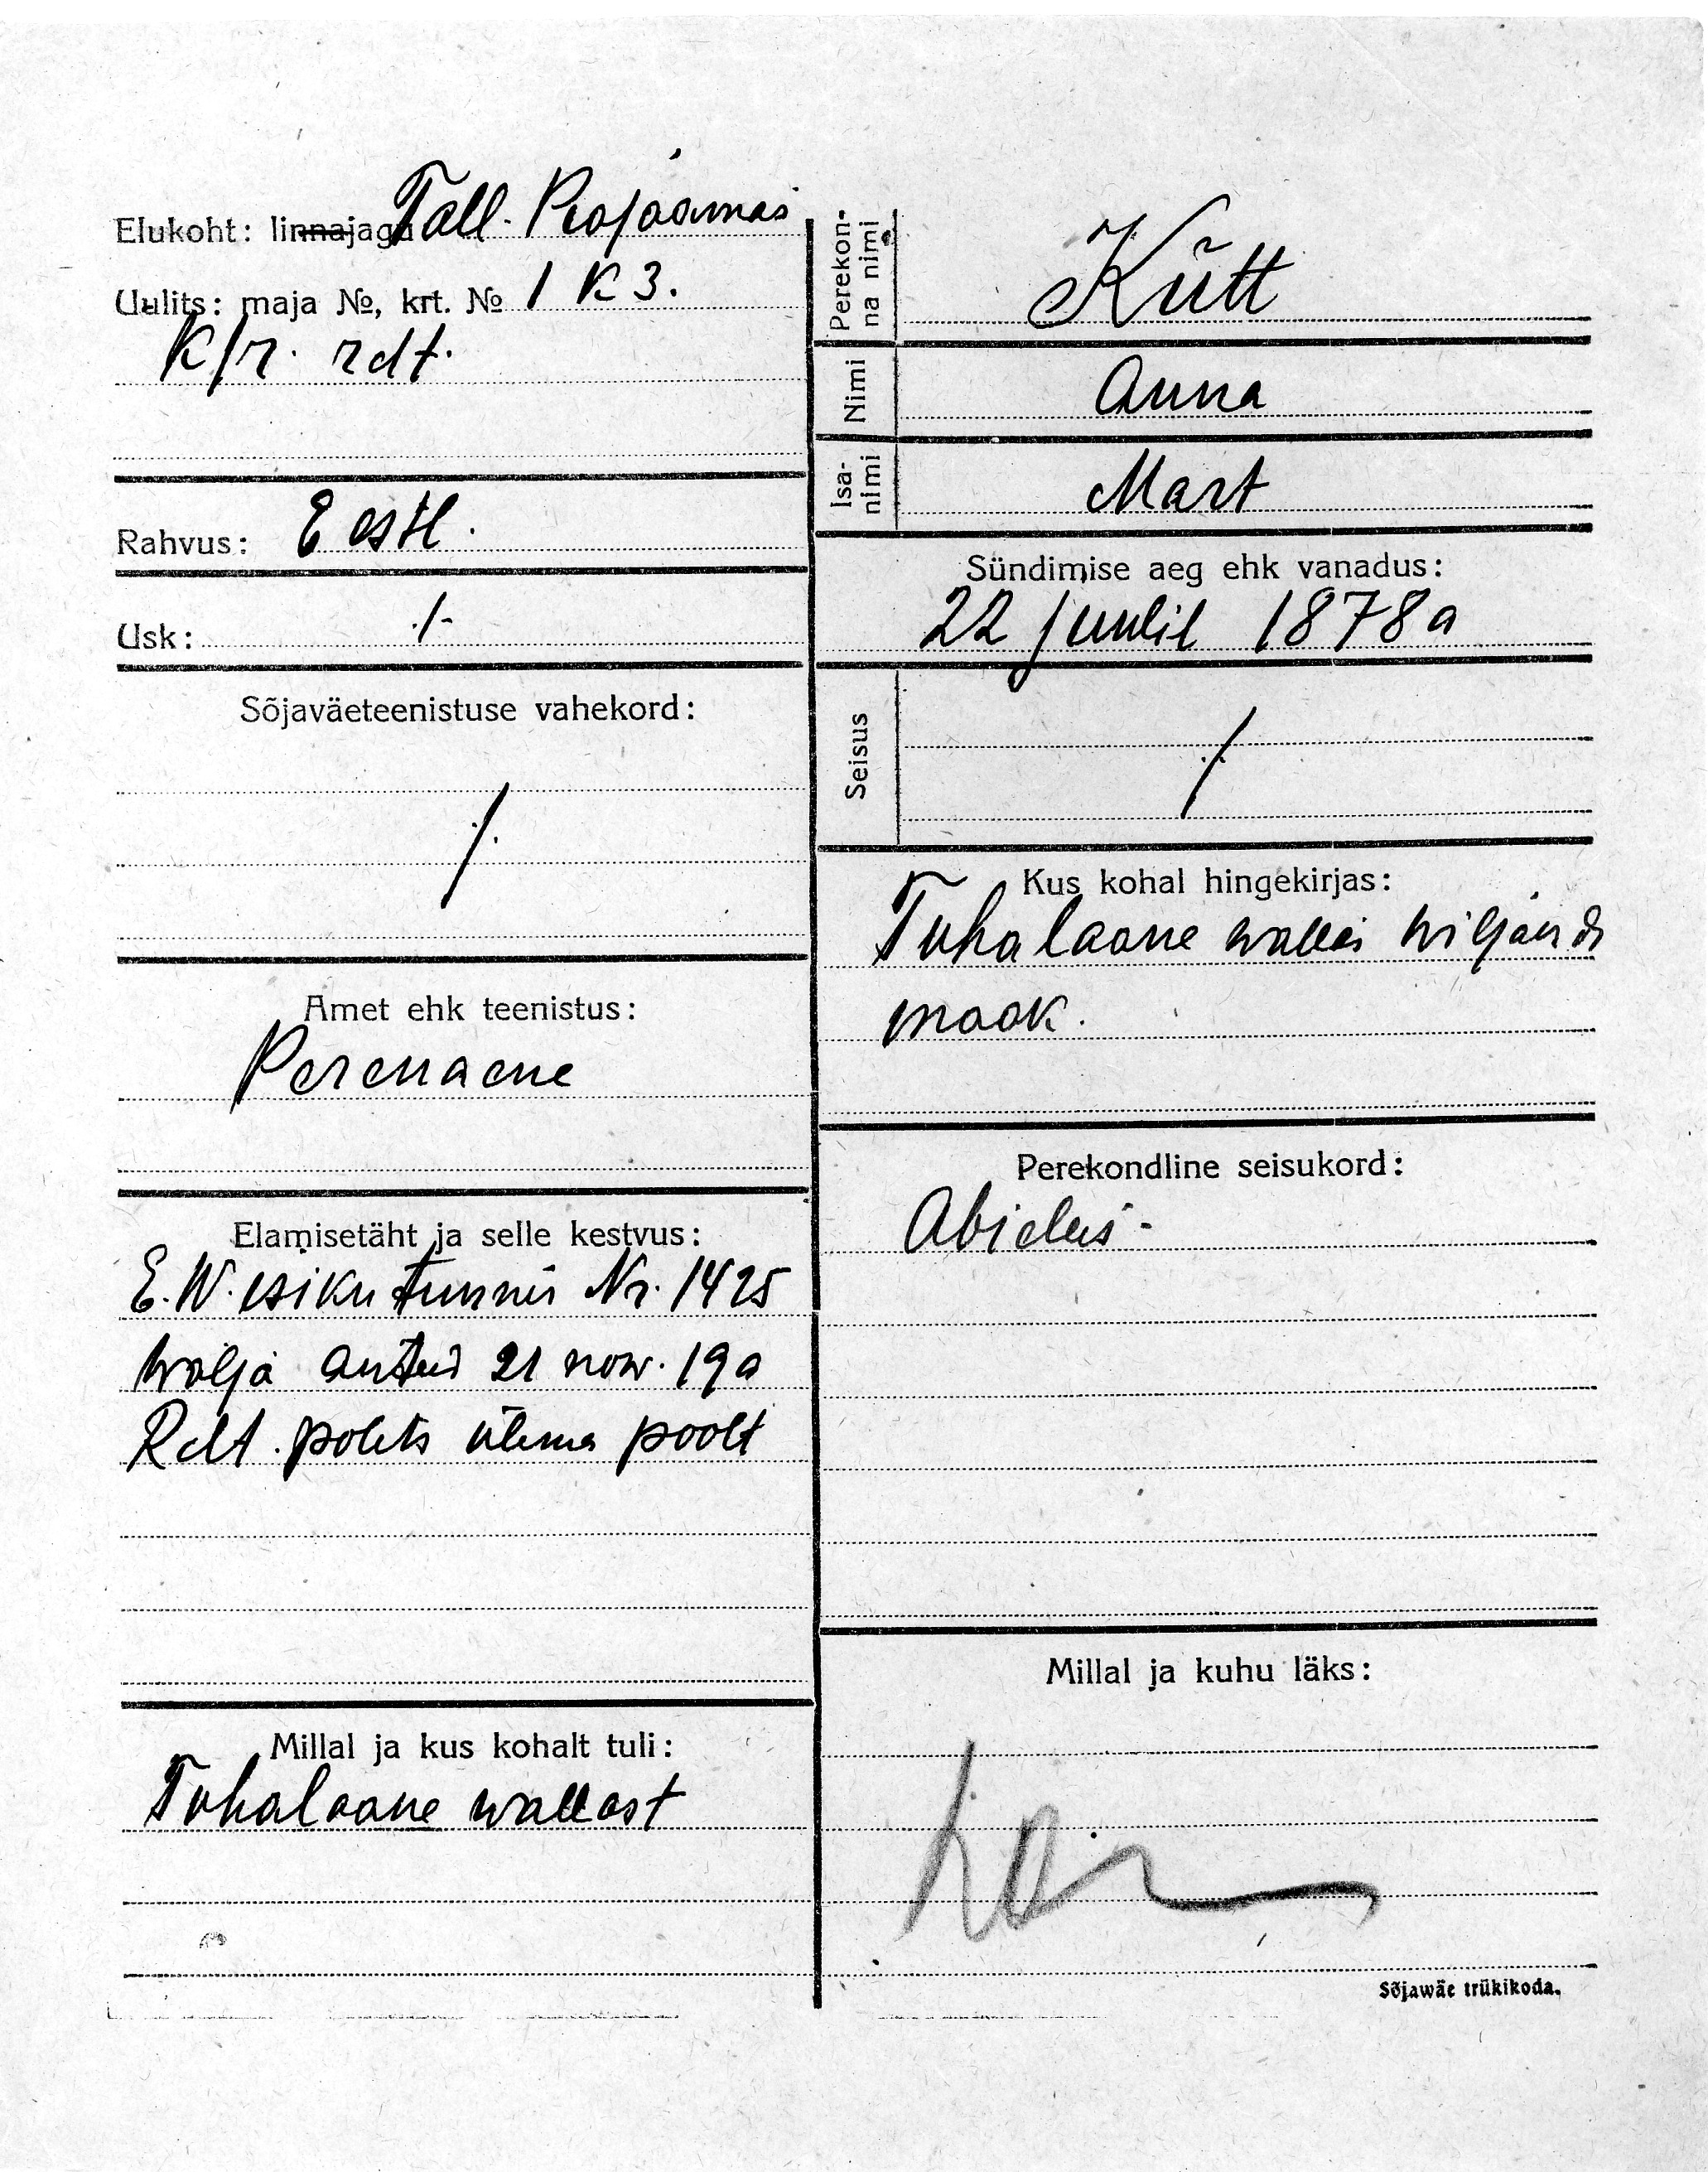 Elukoht: linnajagu Tall. Peajaamas
Uulits: maja №, krt. № 1 K 3.
K/r. rdt.
Rahvus: Eestl.
Usk: ./-
Sõjaväeteenistuse vahekord:
./.
Amet ehk teenistus:
Perenaene
Elamisetäht ja selle kestvus:
E.W. isiku tunnis Nr. 1425
wälja antud 21 now. 19a
Rdt. polits ülema poolt
Millal ja kus kohalt tuli:
Tuhalaane wallast
Perekon-
na nimi
Kütt
Nimi Anna
Isa-
nimi
Mart
Sündimise aeg ehk vanadus:
22 juulil 1878 a
Seisus ./.
Kus kohal hingekirjas:
Tuhalaane wallas Wiljandi
maak.
Perekondline seisukord:
Abielus-
Millal ja kuhu läks:
Sõjawäe trükikoda.